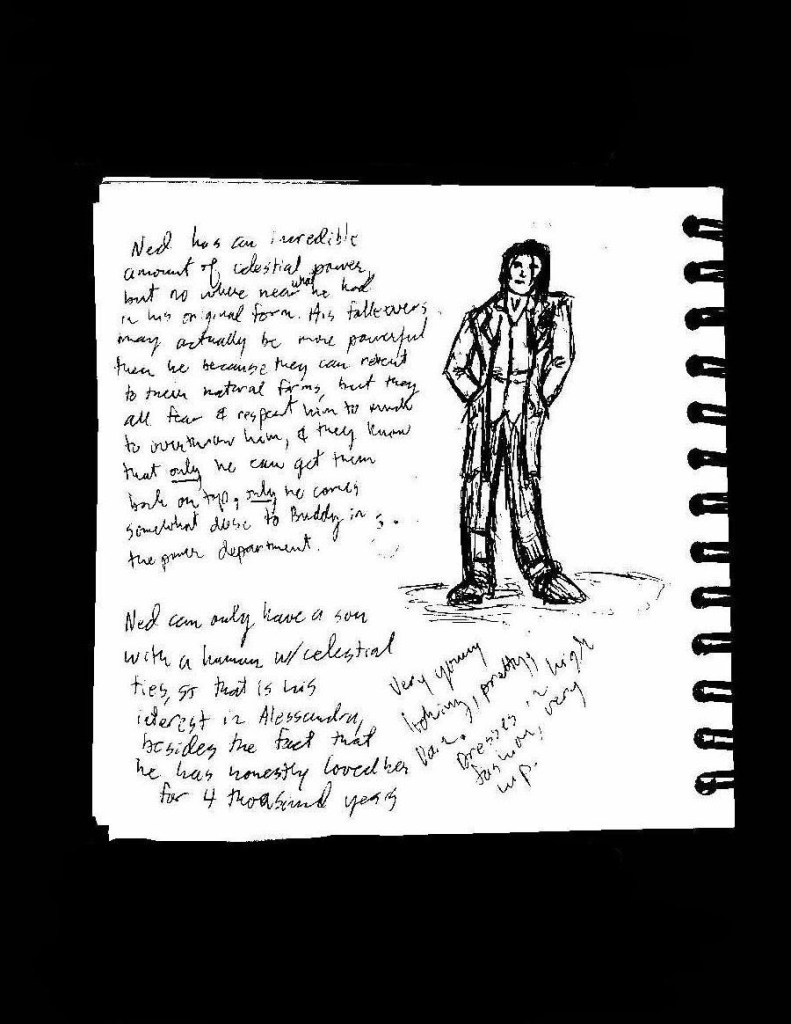 Ned has an incredible
amount of celestial power,
but no where near what he had
in his original form. His followers
may actually be more powerful
then he because they can revert
to their natural forms, but they
all fear & respect him to much
to overthrow him, & they know
that only he can get them
back on top, only he comes
somewhat close to Buddy in
the power department.
Ned can only have a son
with a human w/celestial
ties, so that is his
interest in Alessandra,
besides the fact that
he has honestly loved her
for 4 thousand years
Very young
looking, pretty,
Dresses in high
fashion, very
hip.